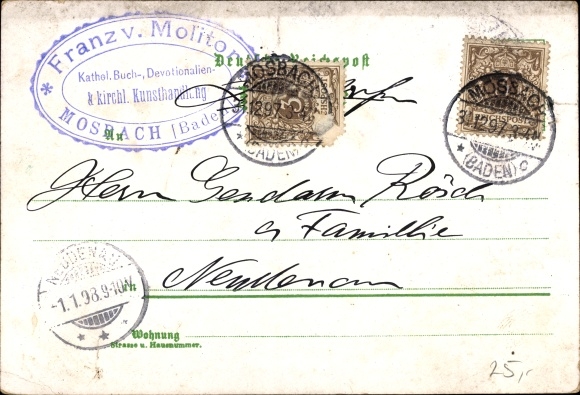 * Franz v. Molitor
Kathol. Buch-, Devotionalien-
& kirchl. Kunsthandlung
MOSBACH (Baden)
Deutsche Reichspost
MOSBACH
12.97
* (BADEN)
3
MOSBACH
12.97
* (BADEN) c
REICHSPOST
An
Herrn Gendarm Rösch
& Familie
Neudenau
in
NEUDENAU
1.1.98.9-10V.
* *
Wohnung
Strasse u. Hausnummer.
25,-